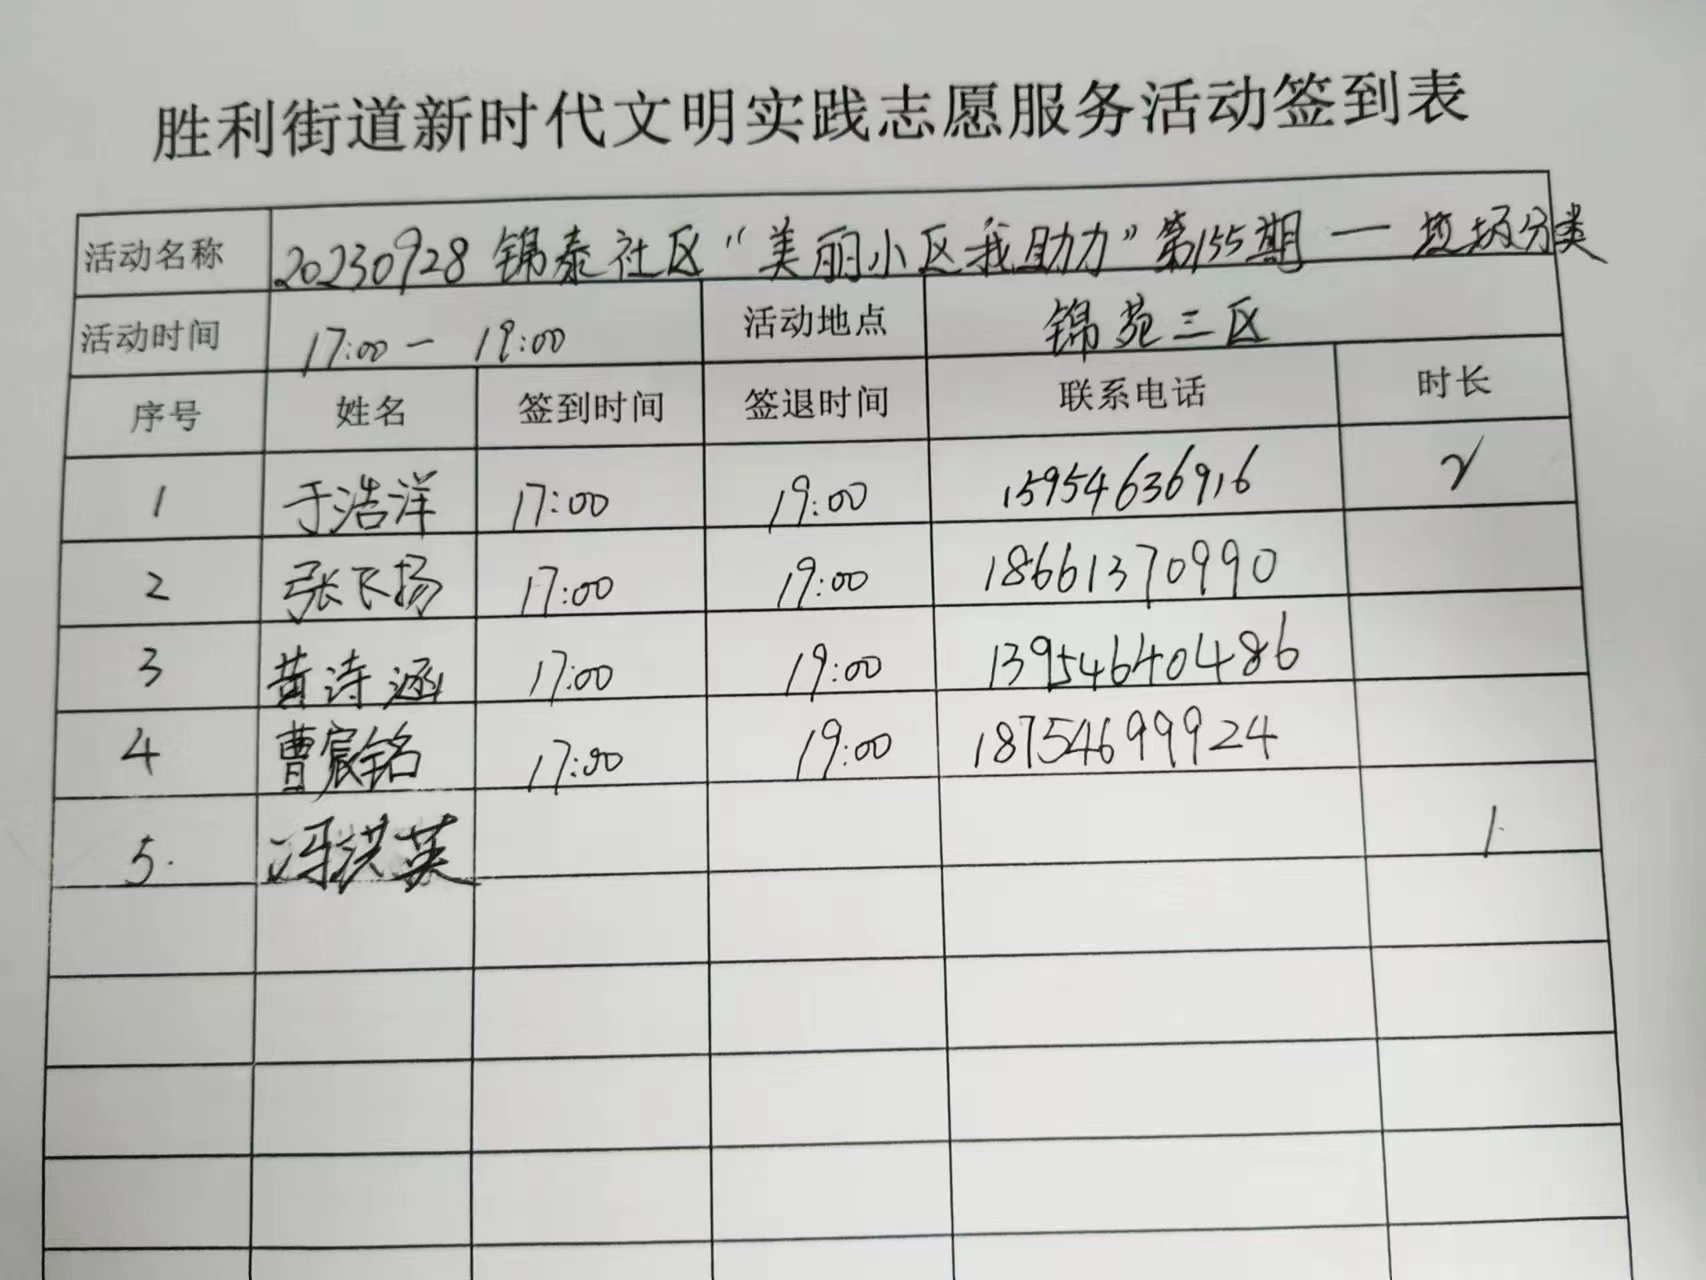 胜利街道新时代文明实践志愿服务活动签到表
活动名称 20230928 锦泰社区“美丽小区我助力”第155期 — 垃圾分类
活动时间 17:00 — 19:00 活动地点 锦苑三区
序号 姓名 签到时间 签退时间 联系电话 时长
1 于浩洋 17:00 19:00 15954636916 2
2 张飞扬 17:00 19:00 18661370990
3 黄诗涵 17:00 19:00 13954640486
4 曹宸铭 17:00 19:00 18754699924
5. 冯洪英 1